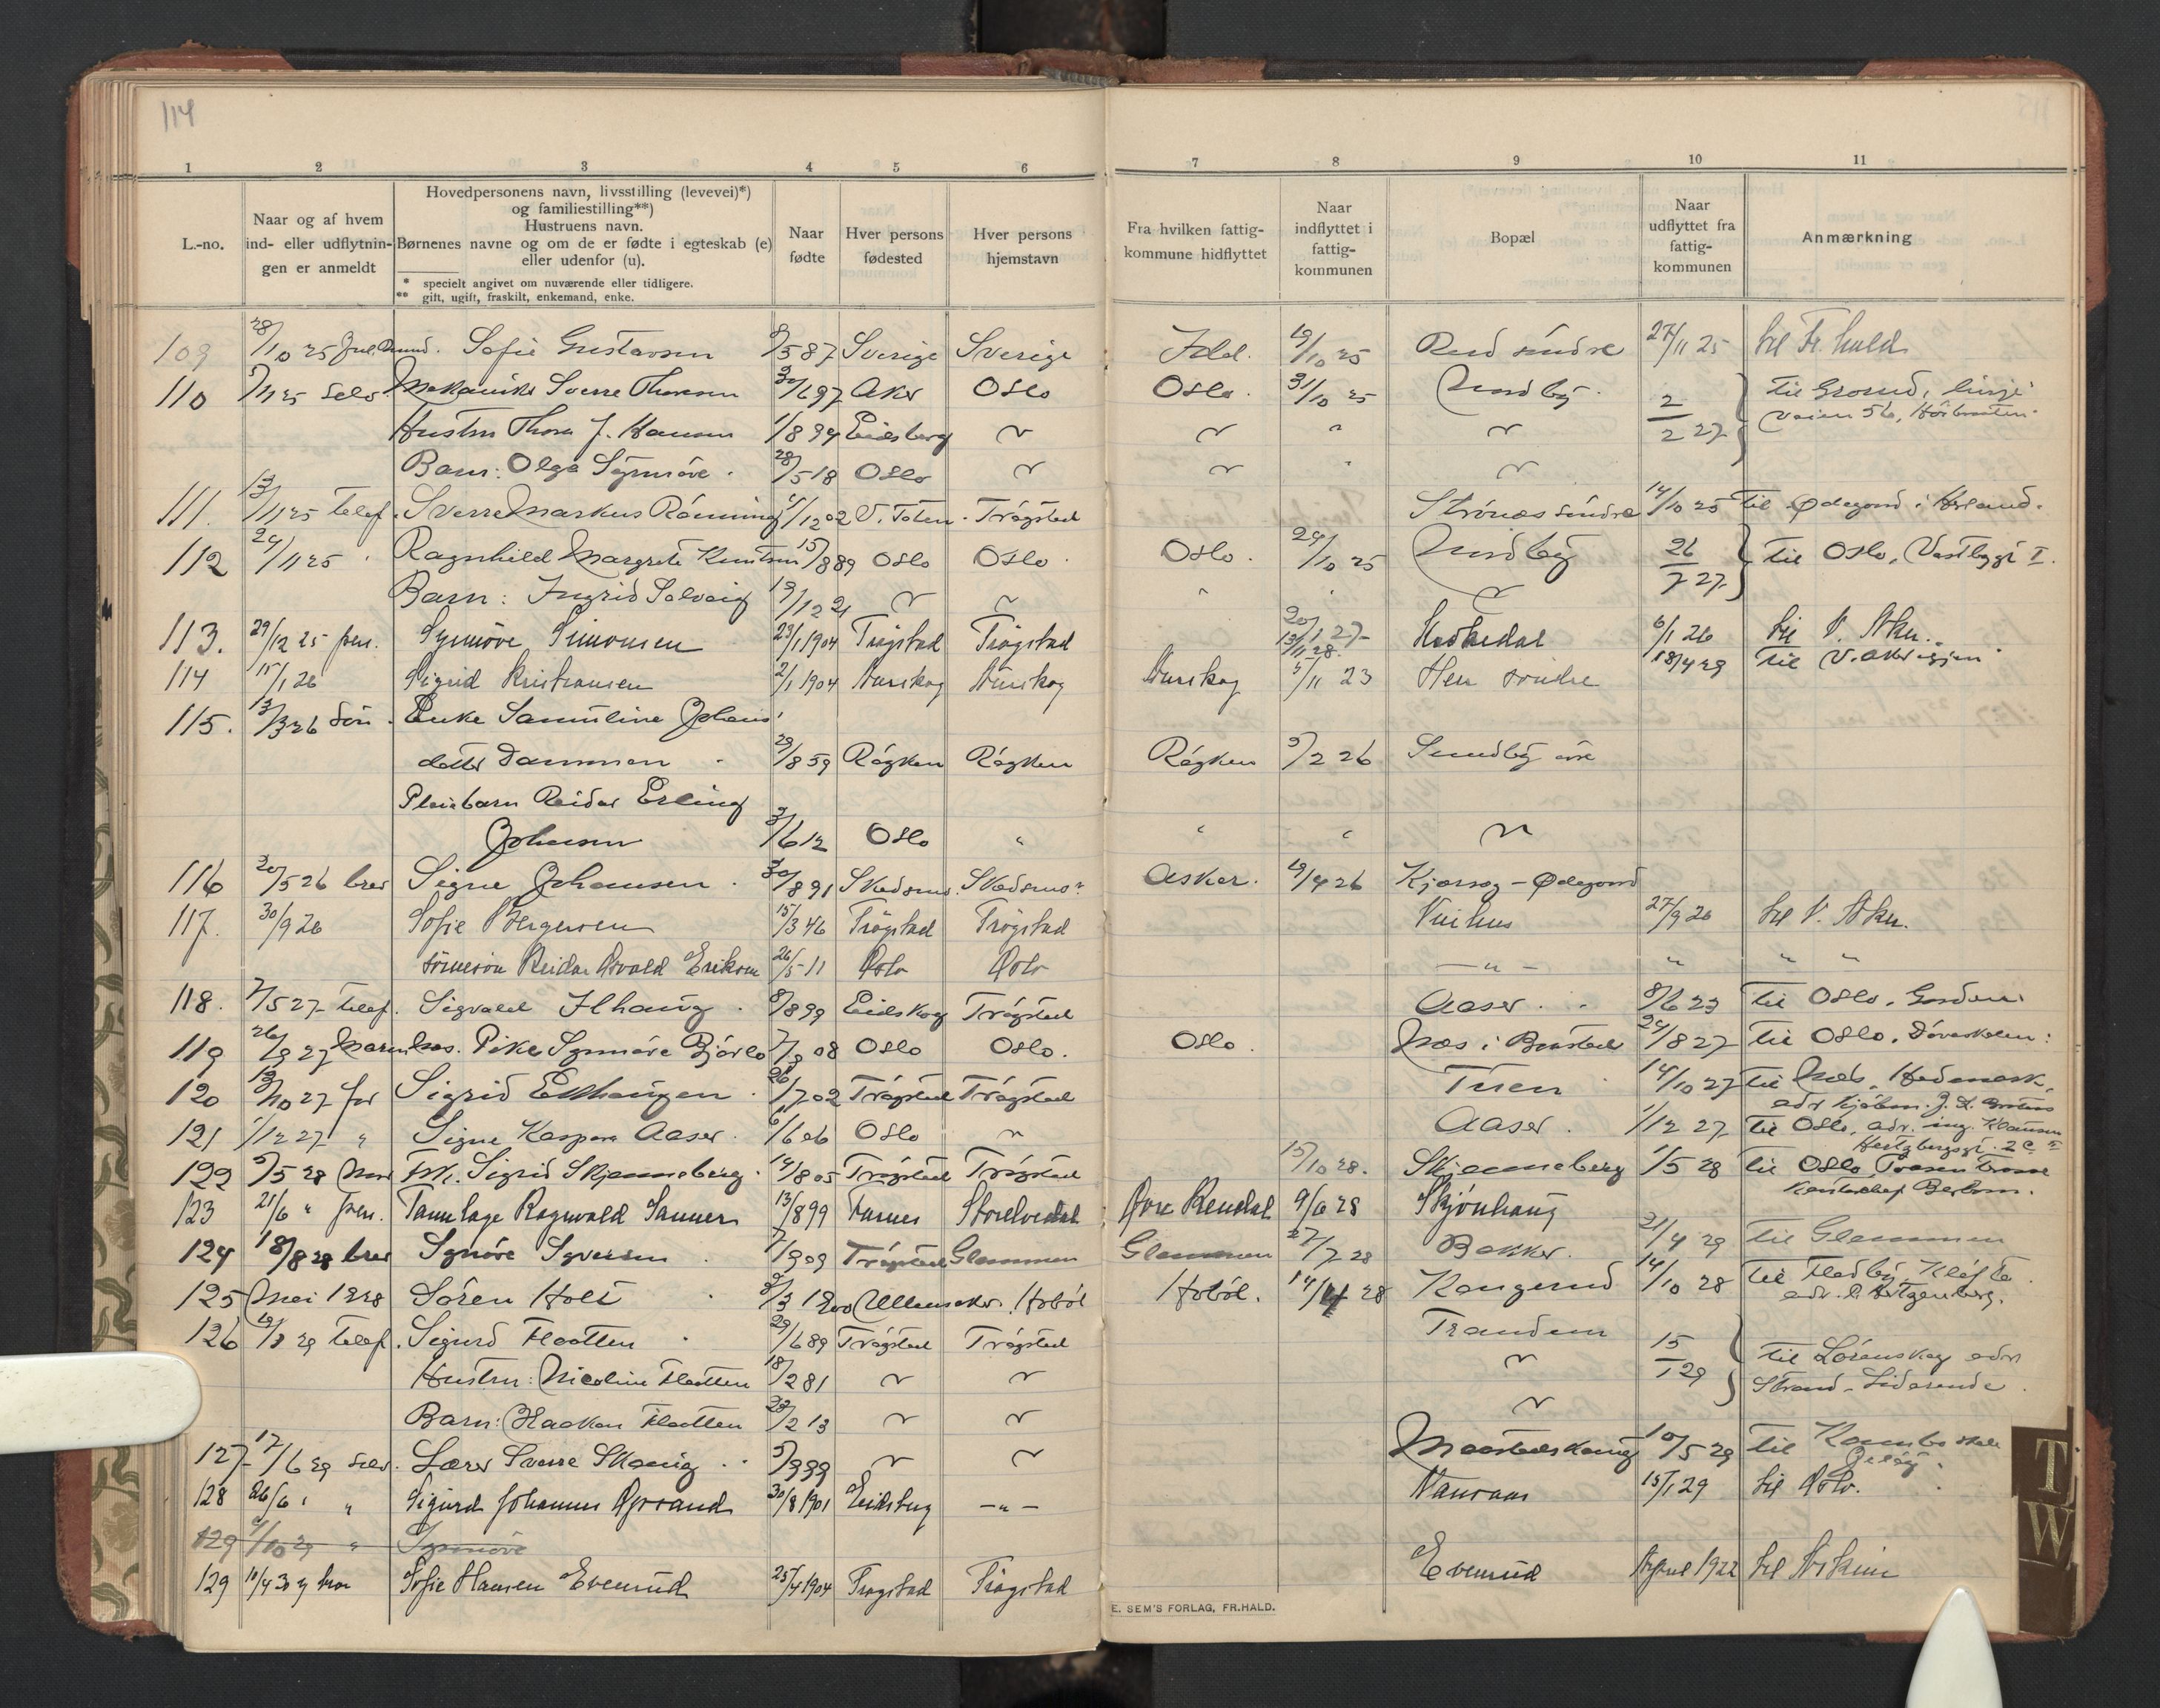 114
1 2 3 4 5 6 7 8 9 10 11
L.-no.
Naar og af hvem
ind- eller udflytnin-
gen er anmeldt
Hovedpersonens navn, livsstilling (levevei)*)
og familiestilling**)
Hustruens navn.
Børnenes navne og om de er fødte i egteskab (e)
eller udenfor (u).
* specielt angivet om nuværende eller tidligere.
** gift, ugift, fraskilt, enkemand, enke.
Naar
fødte
Hver persons
fødested
Hver persons
hjemstavn
Fra hvilken fattig-
kommune hidflyttet
Naar
indflyttet i
fattig-
kommunen
Bopæl
Naar
udflyttet fra
fattig-
kommunen
Anmærkning
109 28/10 25 Sofie Gustavsen 87 Sverige Sverige Idd. 19/10 25 Rud søndre 27/11 25 til Fr. hald
110 5/11 25 Selv Mekaniker Sverre Thoresen 97 Aker Oslo Oslo. 31/10 25 Mundby. 2/2 27 } til Grorud, linje
Hustru Thora J. Hansen 1/8 94 Eidsberg " " " " veien 56,
Barn: Olga Synnøve. 28/5 18 Oslo " " " "
111. 13/11 25 telef. Sverre Markus Rønning 1/12 02 V. Toten. Trøgstad Strønes søndre 14/10 25 til Ødegaard i Hærland.
112 24/11 25 Ragnhild Margrete Knutsen 15/8 89 Oslo Oslo. Oslo. 29/10 25 Mundby 26/7 27 } til Oslo, Vestbygt I.
Barn: Ingrid Solveig 19/12 21 " " " " "
113. 29/12 25 pres. Synnøve Simonsen 29/1 1904 Trøgstad Trøgstad 20/1 27 13/11 28. Heskedal 6/1 26 til V. Aker.
114 15/1 26 Sigrid Kristiansen 2/1 1904 Aurskog Aurskog Aurskog 4/11 23 Hen søndre 18/4 29 til V. Aker igjen
115. 13/3 26 Søn Enke Samuline Johans
datter Dammen 29/8 59 Røyken Røyken Røyken 5/2 26 Sundby øvre
Pleiebarn Reidar Erling
Johansen 3/6 12 Oslo " " " "
116 20/5 26 brev Signe Johansen. 30/8 91 Skedsmo. Skedsmo. Asker. 19/4 26 Kjersøg - Ødegaard
117. 30/9 26 Sofie Bergersen 15/3 46 Trøgstad Trøgstad Vinhus 27/9 26 til V. Aker.
sønnesøn Reidar Osvald Eriksen 26/5 11 Oslo Oslo — " — " " "
118. 7/5 27 telef. Sigvald Ilhaug. 8/8 99 Eidskog Trøgstad Aaser. 8/6 23 til Oslo, Garden.
119 26/9 27 Pike Synnøve Bjørlo 7/9 08 Oslo Oslo. Oslo. Næs i Båstad 29/8 27 til Oslo, Døveskolen.
120 19/10 27 far Sigrid Ekhaugen. 26/7 02 Trøgstad Trøgstad Tuen 14/10 27 til Næs, Hedemark,
121 1/12 27 " Signe Kaspara Aaser. 6/6 06 Oslo " Aaser. 1/12 27 til Oslo, adr. ing. Klausen
Hertzbergsgt. 2 C.
122 5/5 28 Mor Frk. Sigrid Skjenneberg. 14/8 05 Trøgstad Trøgstad 15/10 28. Skjenneberg 1/5 28 til Oslo,
123 21/6 " pres. Tannlæge Ragnvald Sanner 13/8 99 Furnes Storelvedal Øvre Rendal 9/6 28 Skjønhaug
124 18/8 28 brev Synøve Syversen. 7/9 09 Trøgstad Glemmen Glemmen 27/7 28 Bakker. 21/4 29 til Glemmen
125 Mai 1928 Søren Holt. 3/3 1900 Ullensaker. Hobøl Hobøl. 14/4 28 Kongerud 14/10 28 til Fladby, Kløfta.
126 telef. Sigurd Flotten. 29/6 89 Trøgstad Trøgstad Trandem 15/1 29 } til Lørenskog adr.
Hustru: Nicoline Flotten 18/2 81 " " " Strand
Barn: Haakon Flotten 23/2 13 " " "
127 17/6 29 selv. Lærer Sverre Skaug. 5/9 99 " " Maastadskaug 10/5 29 til Kambo
128 26/6 " " Sigurd Johannes Opsand 30/8 1901 Eidsberg — " — Namraas 15/1 29 til Oslo.
129 4/10 29 " Synnøve
129 10/4 30 Sofie Hansen Evenrud 25/4 1904 Trøgstad Trøgstad Evenrud April 1922 til Askim
E. SEM'S FORLAG, FR.HALD.
T
W